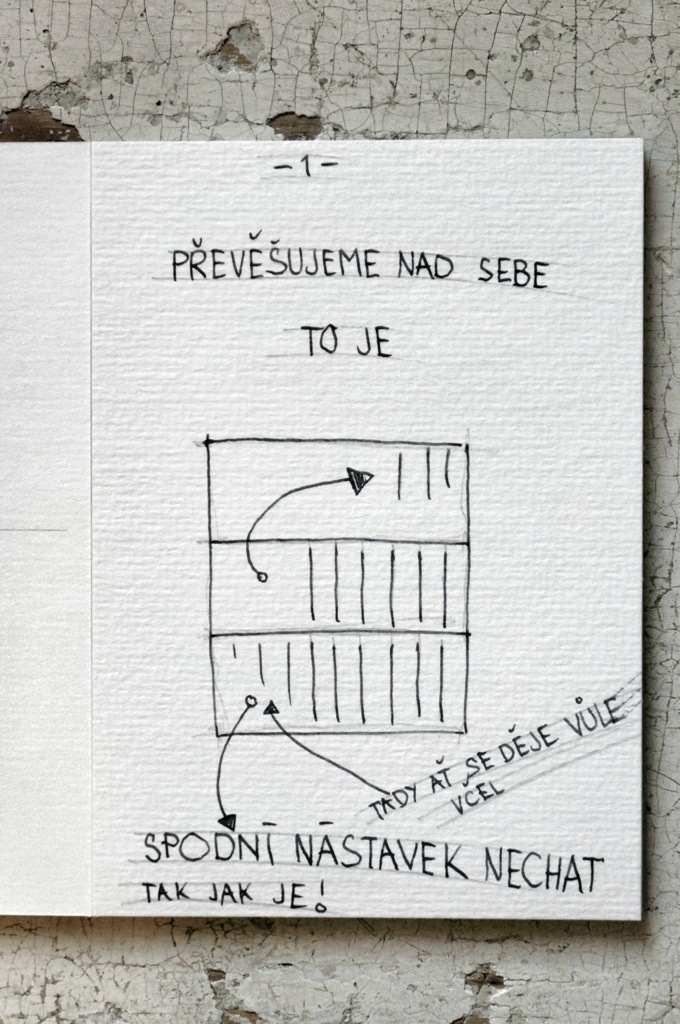 -1-
PŘEVĚŠUJEME NAD SEBE
TO JE
TADY AŤ SE DĚJE VŮLE
VČEL
SPODNÍ NÁSTAVEK NECHAT
TAK JAK JE!